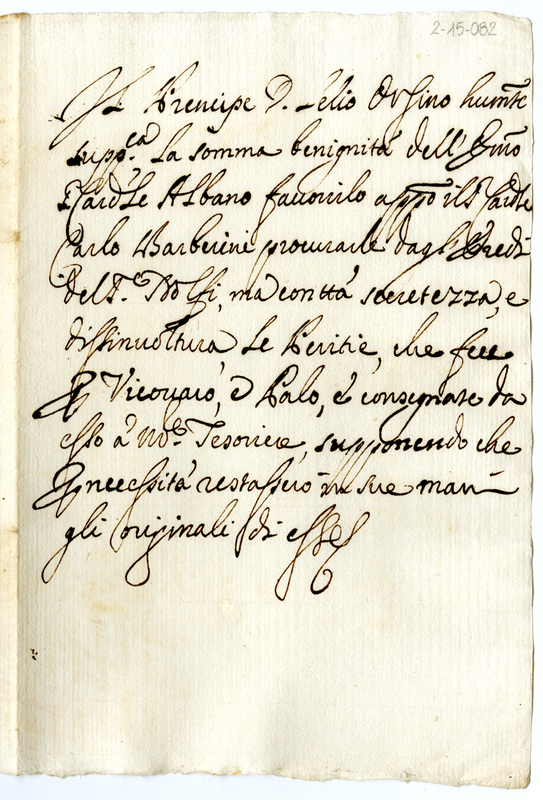 2-15-082
Il Prencipe D. Lelio Orsino humte
suppca. La somma benignità dell'Emo
Cardle Albano favorirlo appo il Sr Cardle
Carlo Barberini procurarle dagl'Eredi
del Sr. Wolfi, ma con ttà secretezza, e
dissinvoltura le Peritie, che fece
P Vicovaro, e Palo, e consegnate da
esso à Mre Tesoriere, supponendo che
P necessità restassero in sue mani
gli originali di esse